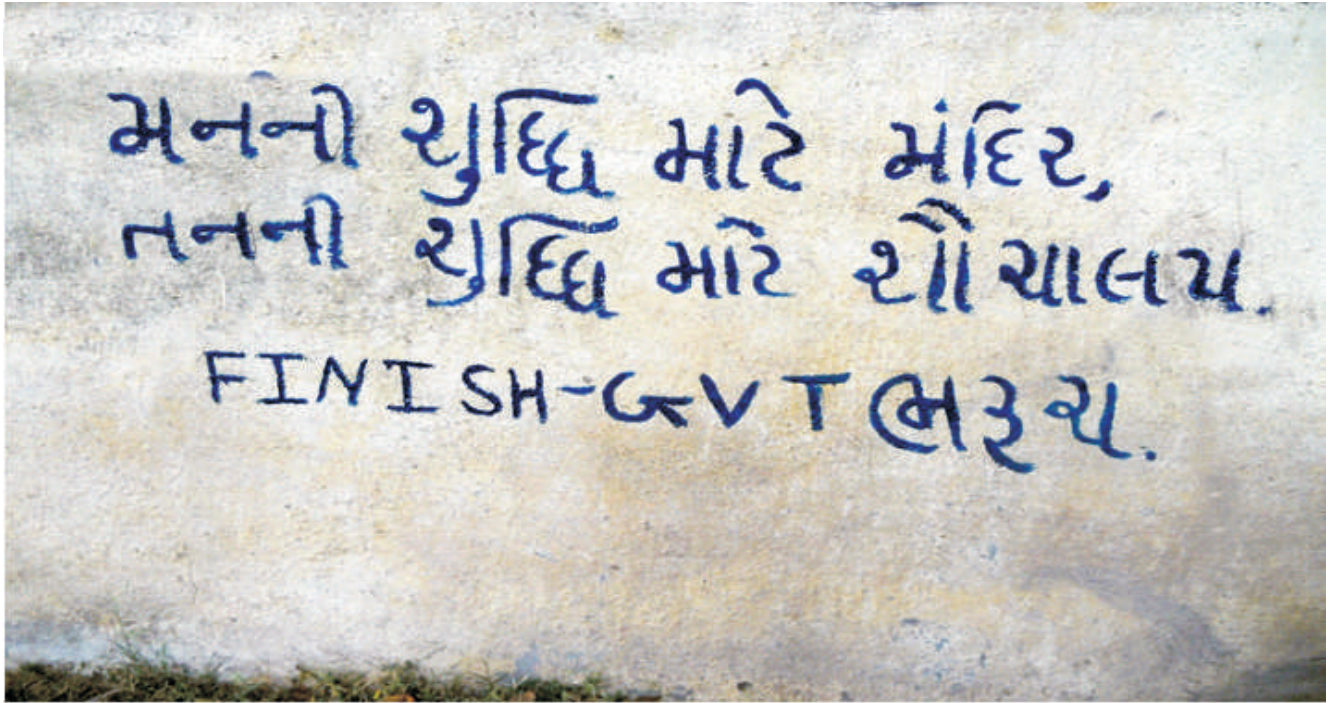 મનની શુધ્ધિ માટે મંદિર,
તનની શુધ્ધિ માટે શૌચાલય.
FINISH-GVT ભરૂચ.